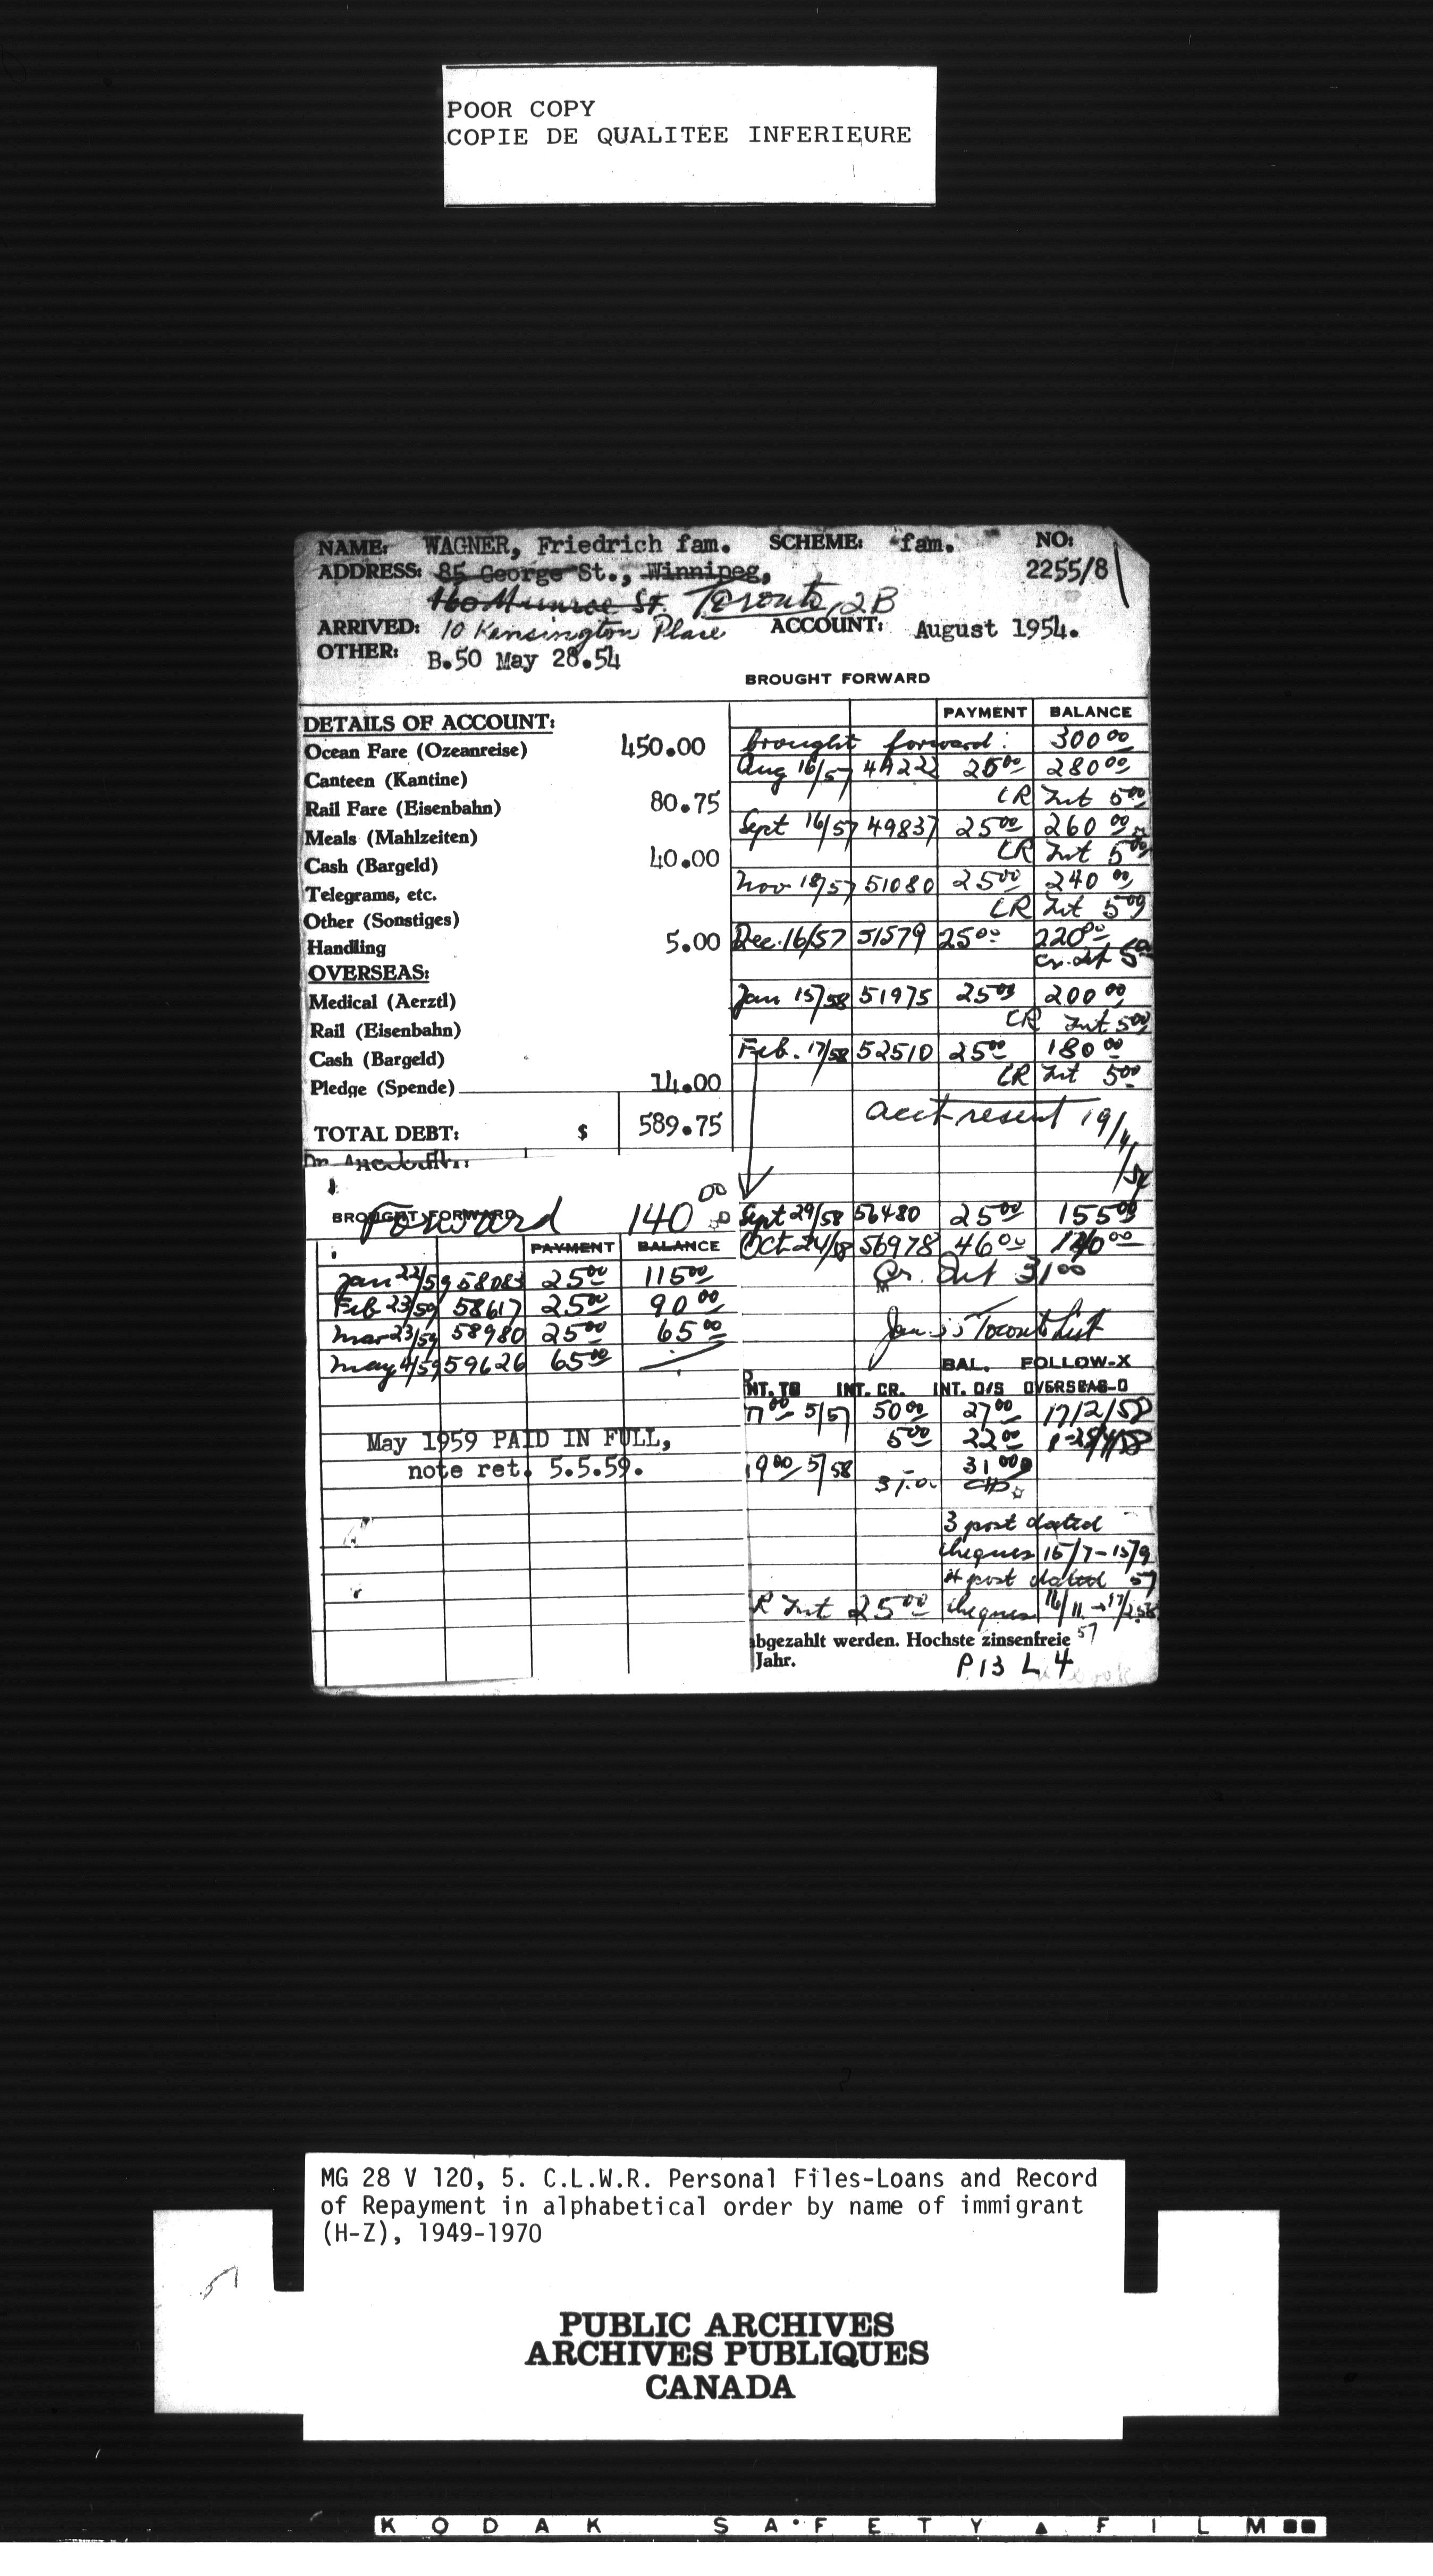 POOR COPY
COPIE DE QUALITEE INFERIEURE
NAME: WAGNER, Friedrich fam. SCHEME: fam. NO:
ADDRESS: 85 George St., Winnipeg, 2255/8
160 Munroe St. Toronto, 2B
ARRIVED: 10 Kensington Place ACCOUNT: August 1954.
OTHER: B.50 May 28.54
BROUGHT FORWARD
DETAILS OF ACCOUNT:
Ocean Fare (Ozeanreise) 450.00
Canteen (Kantine)
Rail Fare (Eisenbahn) 80.75
Meals (Mahlzeiten)
Cash (Bargeld) 40.00
Telegrams, etc.
Other (Sonstiges)
Handling 5.00
OVERSEAS:
Medical (Aerztl)
Rail (Eisenbahn)
Cash (Bargeld)
Pledge (Spende) 14.00
TOTAL DEBT: $ 589.75
PAYMENT BALANCE
brought forward: 300 00
Aug 16/57 25 00 280 00
CR Int 5 00
Sept 16/57 49837 25 00 260 00
CR Int 5 00
Nov 18/57 51080 25 00 240 00
CR Int 5 00
Dec. 16/57 51579 25 00 220 00
Cr. Int 5 00
Jan 15/58 51975 25 00 200 00
CR Int 5 00
Feb. 17/58 52510 25 00 180 00
CR Int 5 00
acct resent 19/4
Sept 29/58 56480 25 00 155 00
Oct 24/58 56978 46 00 140 00
Cr. Int 31 00
Toronto List
BROUGHT FORWARD
Forward 140 00
PAYMENT BALANCE
Jan 22/59 58083 25 00 115 00
Feb 23/59 58617 25 00 90 00
Mar 23/59 58980 25 00 65 00
May 4/59 59626 65 00
May 1959 PAID IN FULL,
note ret. 5.5.59.
BAL. FOLLOW-X
INT. TO INT. CR. INT. O/S OVERSEAS-O
5/57 50 00 27 00 17/2/58
5 00 22 00
9 00 5/58 31 00
3 post dated
cheques 15/7-15/9
57
4 post dated
cheques 16/11
R Int 25 00
57
abgezahlt werden. Hochste zinsenfreie
Jahr.
P13 L4
MG 28 V 120, 5. C.L.W.R. Personal Files-Loans and Record
of Repayment in alphabetical order by name of immigrant
(H-Z), 1949-1970
PUBLIC ARCHIVES
ARCHIVES PUBLIQUES
CANADA
KODAK SAFETY FILM